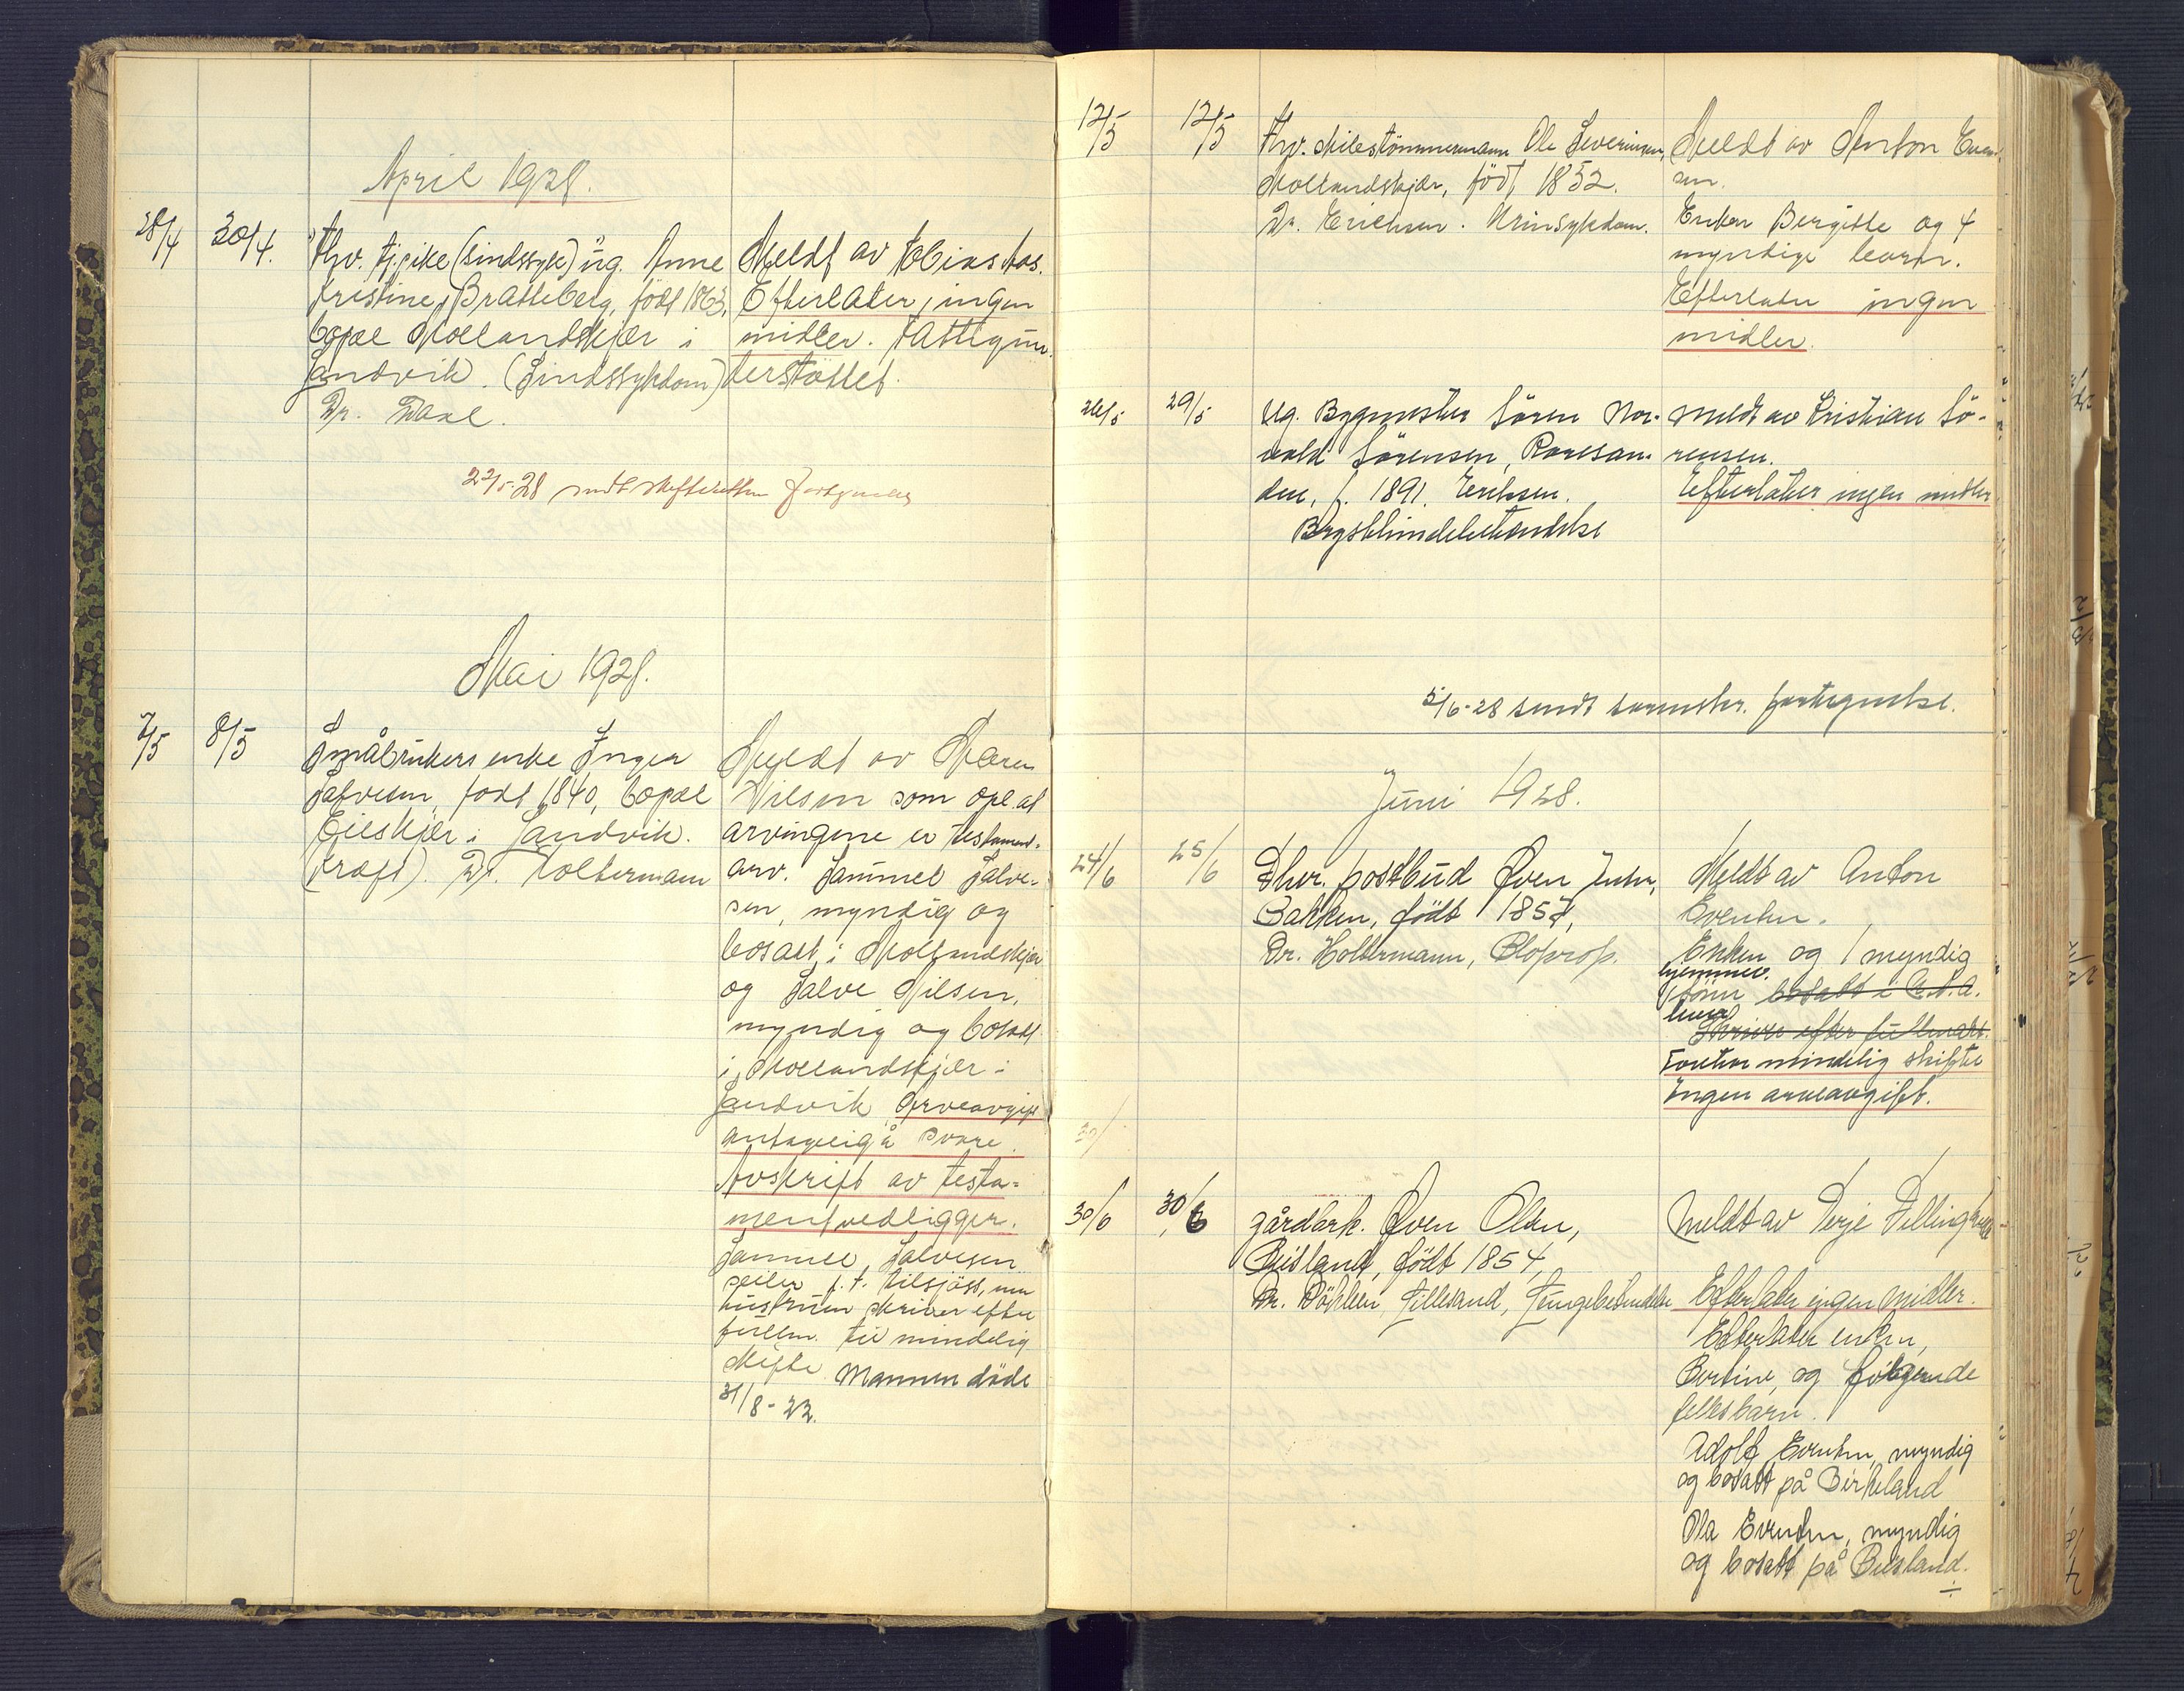 April 1928.
28/4 30/4. Fhv. tj.pike (sindssyk) ug. Anne
Kristine Bratteberg, född 1863,
bopæl Mollandskjær i
Landvik. (Sindssykdom)
Dr. Dahl.
Meldt av Tobias Aas.
Efterlater ingen
midler. Fattigun-
derstöttet.
22/5-28 sendt skifteretten fortegnelse
Mai 1928.
7/5 8/5 Småbrukers enke Inger
Salvesen, född 1840, bopæl
Eilskjær i Landvik.
(Kræft). Dr. Holtermann
Meldt av Maren
Nilsen som opl. at
arvingene er testament-
arv. Sammel Salve-
sen, myndig og
bosatt i Mollandskjær
og Salve Nilsen,
myndig og bosatt
i Mollandskjær i
Landvik Arveavgift
antagelig å svare.
Avskrift av testa-
ment vedligger.
Sammel Salvesen
seiler f. t. tilsjöss, men
hustruen skriver efter
fullm. til mindelig
skifte Mannen döde
31/8-22.
12/5 12/5 Fhv. skibstömmermann Ole Severinsen,
Mollandskjær, född 1852.
Dr. Erichsen. Urinsykdom.
Meldt av Anton Even-
sen.
Enken Bergitte og 4
myndige barn.
Efterlater ingen
midler.
26/5 29/5 Ug. Bygmester Sören Nor-
vald Sörensen, Roresan-
den, f. 1891. Erichsen.
Brysthindebetændelse
Meldt av Kristian Sö-
rensen.
Efterlater ingen midler
5/6-28 sendt sorenskr. fortegnelse.
Juni 1928.
24/6 25/6 Fhv. postbud Even Jens.,
Bakken, födt 1857,
Dr. Holtermann, Bloprop.
Meldt av Anton
Evensen.
Enken og 1 myndig
hjemmev.
sönn bosatt i U.S.A.
Skriver efter fullmakt.
Foretar mindelig skifte
Ingen arveavgift.
30/
30/6 30/6 gårdbrk. Even Olsen,
Beisland, födt 1854,
Dr. Döhlen, Lillesand, Lungebetendelse
Meldt av Terje
Efterlater ingen midler.
Efterlater enken,
Bertine, og følgende
fellesbarn.
Adolf Evensen, myndig
og bosatt på Birkeland
Ola Evensen, myndig
og bosatt på Beisland.